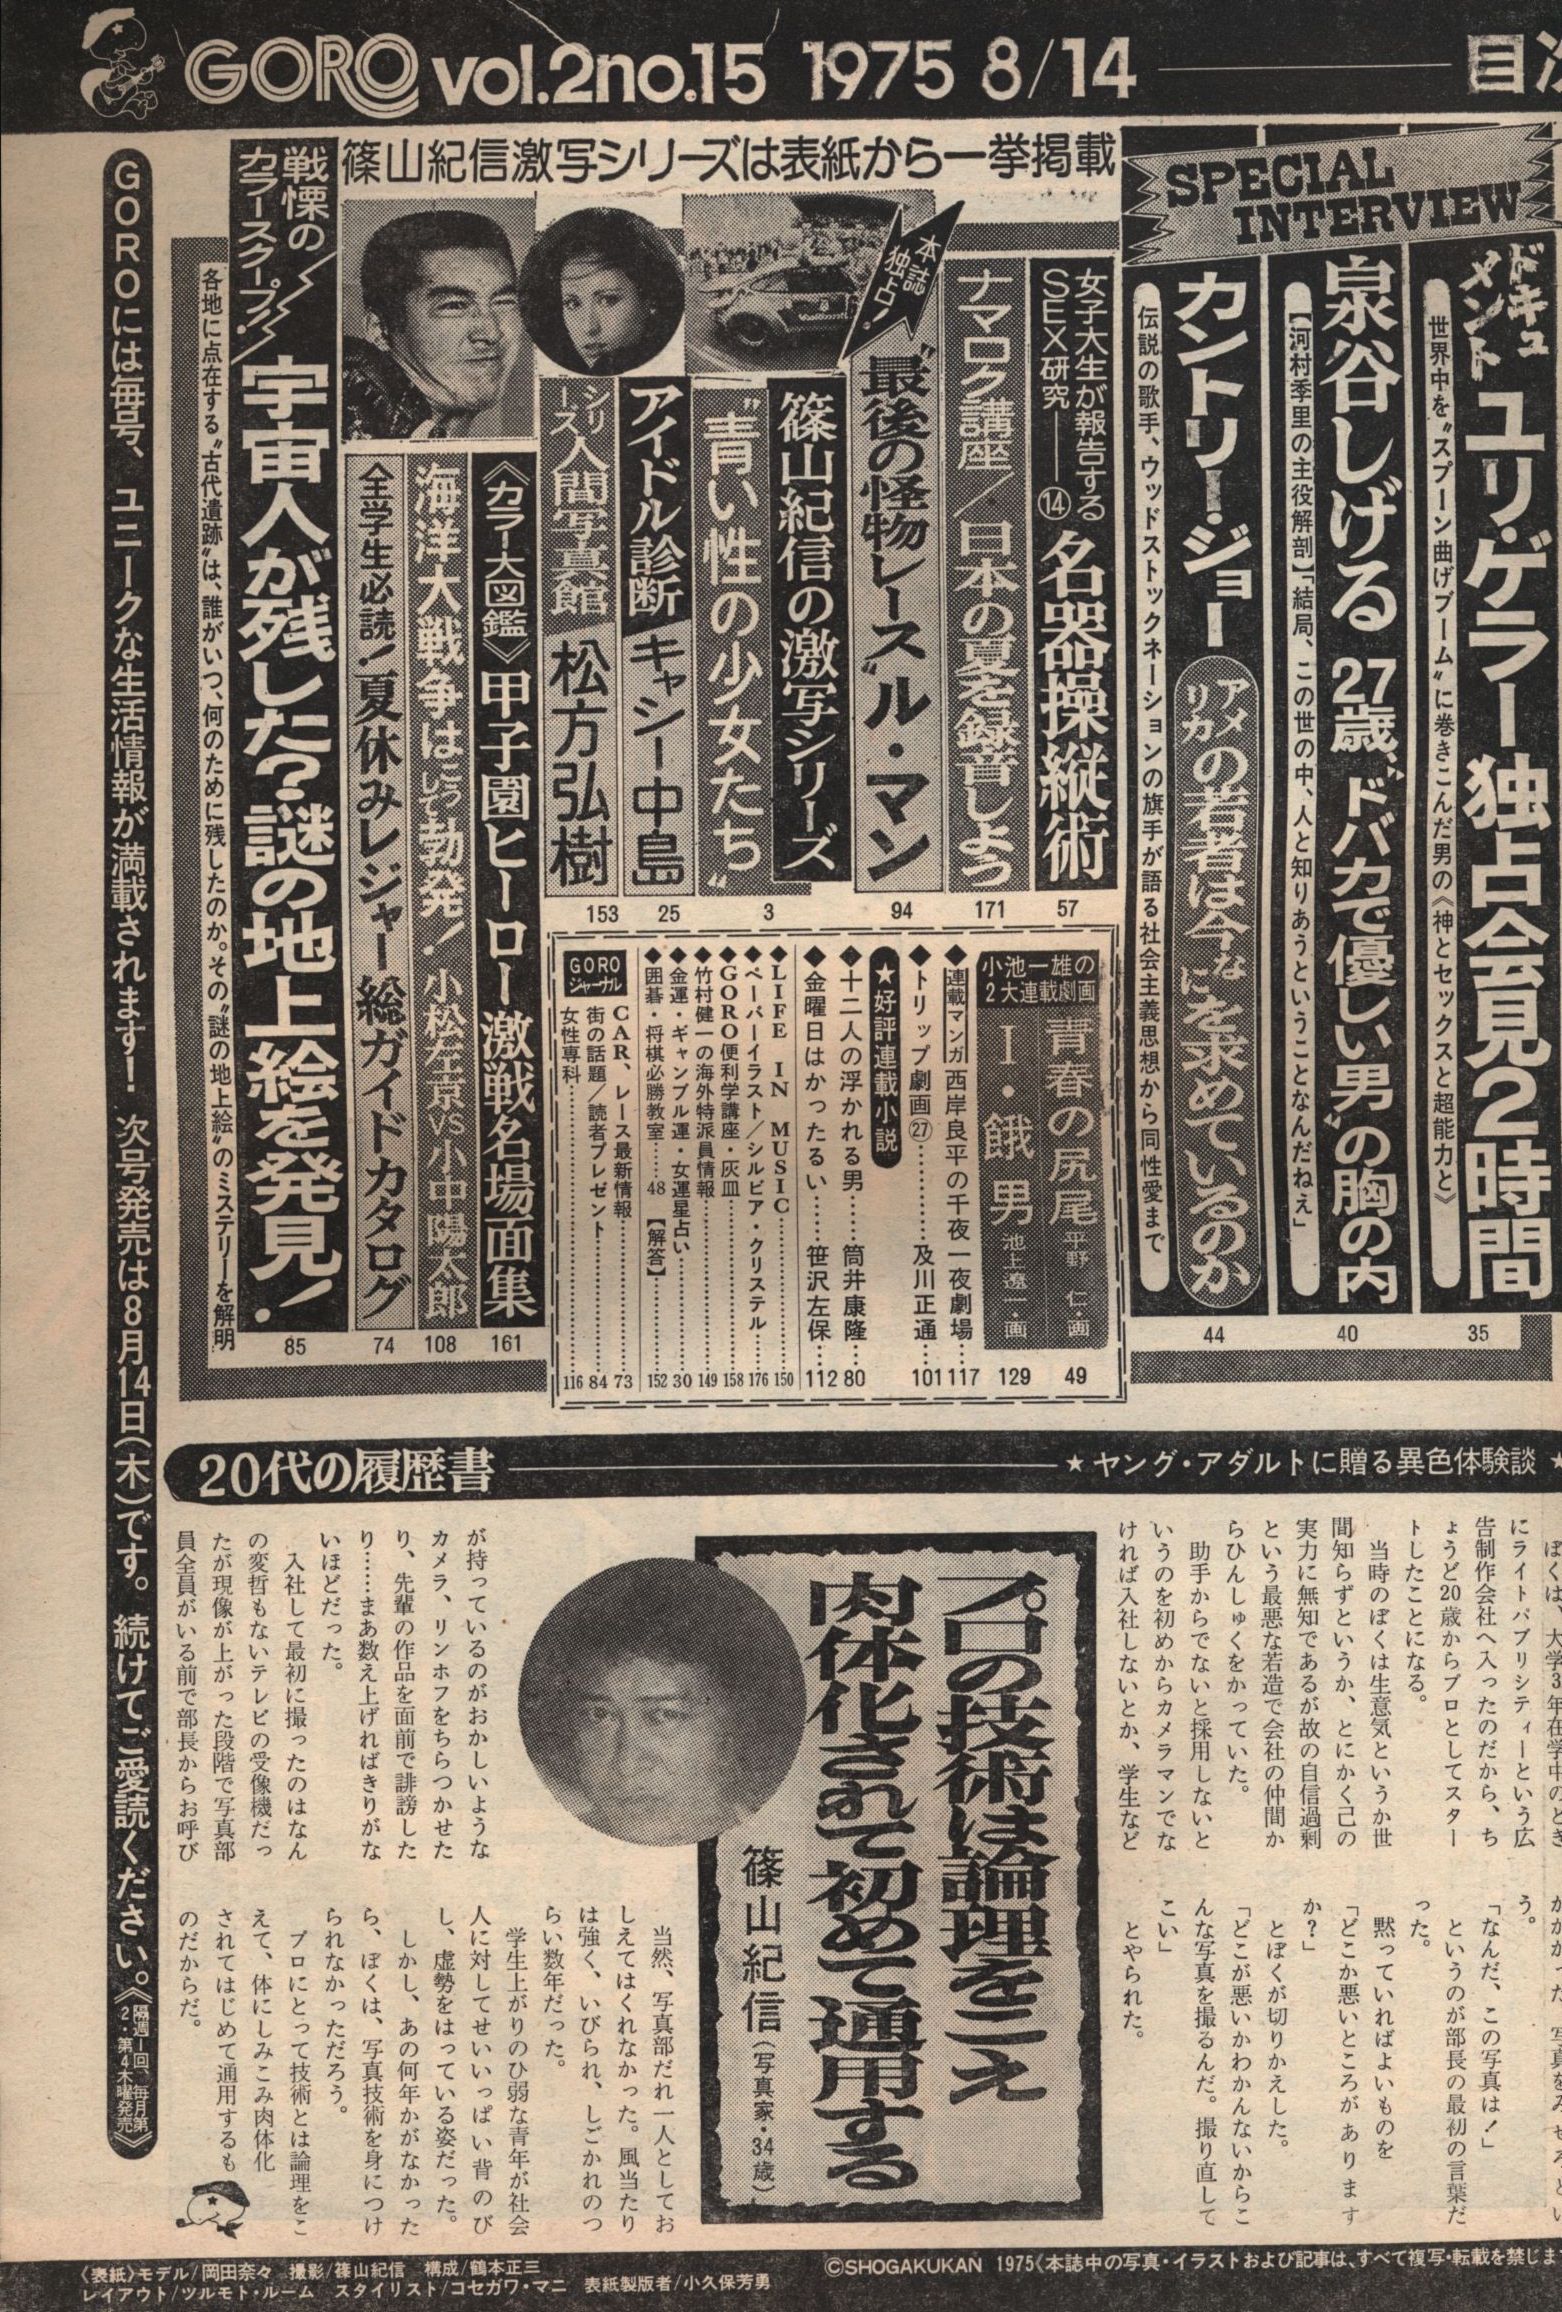 GORO vol.2no.15 1975 8/14
目次
SPECIAL
INTERVIEW
ドキュメント ユリ・ゲラー独占会見2時間
世界中を〝スプーン曲げブーム〟に巻きこんだ男の《神とセックスと超能力と》
35
泉谷しげる 27歳、〝ドバカで優しい男〟の胸の内
【河村季里の主役解剖】「結局、この世の中、人と知りあうということなんだねぇ」
40
カントリー・ジョー アメリカの若者は今なにを求めているのか
伝説の歌手、ウッドストックネーションの旗手が語る社会主義思想から同性愛まで
44
篠山紀信激写シリーズは表紙から一挙掲載
女子大生が報告する
SEX研究——⑭ 名器操縦術
57
ナマロク講座／日本の夏を録音しよう
171
本誌独占!
〝最後の怪物レース〟ル・マン
94
篠山紀信の激写シリーズ
〝青い性の少女たち〟
3
アイドル診断 キャシー中島
25
シリーズ人間写真館 松方弘樹
153
《カラー大図鑑》甲子園ヒーロー激戦名場面集
161
海洋大戦争はこうして勃発! 小松左京VS小中陽太郎
108
全学生必読! 夏休みレジャー総ガイドカタログ
74
戦慄のカラースクープ! 宇宙人が残した?謎の地上絵を発見!
各地に点在する〝古代遺跡〟は、誰がいつ、何のために残したのか。その〝謎の地上絵〟のミステリーを解明
85
小池一雄の
2大連載劇画
青春の尻尾 平野 仁・画
49
I・餓男 池上遼一・画
129
◆連載マンガ 西岸良平の千夜一夜劇場…117
◆トリップ劇画㉗………及川正通…101
★好評連載小説
◆十二人の浮かれる男……筒井康隆…80
◆金曜日はかったるい……笹沢左保…112
◆LIFE IN MUSIC………150
◆ペーパーイラスト／シルビア・クリステル………176
◆GORO便利学講座・灰皿………158
◆竹村健一の海外特派員情報………149
◆金運・ギャンブル運・女運星占い………30
◆囲碁・将棋必勝教室……48【解答】………152
GOROジャーナル
CAR、レース最新情報………73
街の話題／読者プレゼント………84
女性専科………116
GOROには毎号、ユニークな生活情報が満載されます! 次号発売は8月14日(木)です。続けてご愛読ください。《隔週1回 毎月第2・第4木曜発売》
20代の履歴書
★ヤング・アダルトに贈る異色体験談
プロの技術は論理をこえ
肉体化されて初めて通用する
篠山紀信(写真家・34歳)
ぼくは、大学3年在学中のとき
にライトパブリシティーという広
告制作会社へ入ったのだから、ち
ょうど20歳からプロとしてスター
トしたことになる。
当時のぼくは生意気というか世
間知らずというか、とにかく己の
実力に無知であるが故の自信過剰
という最悪な若造で会社の仲間か
らひんしゅくをかっていた。
助手からでないと採用しないと
いうのを初めからカメラマンでな
ければ入社しないとか、学生など
が持っているのがおかしいような
カメラ、リンホフをちらつかせた
り、先輩の作品を面前で誹謗した
り……まあ数え上げればきりがな
いほどだった。
入社して最初に撮ったのはなん
の変哲もないテレビの受像機だっ
たが現像が上がった段階で写真部
員全員がいる前で部長からお呼び
う。
「なんだ、この写真は!」
というのが部長の最初の言葉だ
った。
黙っていればよいものを
「どこか悪いところがあります
か?」
とぼくが切りかえした。
「どこが悪いかわかんないからこ
んな写真を撮るんだ。撮り直して
こい」
とやられた。
当然、写真部だれ一人としてお
しえてはくれなかった。風当たり
は強く、いびられ、しごかれのつ
らい数年だった。
学生上がりのひ弱な青年が社会
人に対してせいいっぱい背のび
し、虚勢をはっている姿だった。
しかし、あの何年かがなかった
ら、ぼくは、写真技術を身につけ
られなかっただろう。
プロにとって技術とは論理をこ
えて、体にしみこみ肉体化
されてはじめて通用するも
のだからだ。
《表紙》モデル/岡田奈々 撮影/篠山紀信 構成/鶴本正三
レイアウト/ツルモト・ルーム スタイリスト/コセガワ・マニ 表紙製版者/小久保芳勇
©SHOGAKUKAN 1975《本誌中の写真・イラストおよび記事は、すべて複写・転載を禁じま